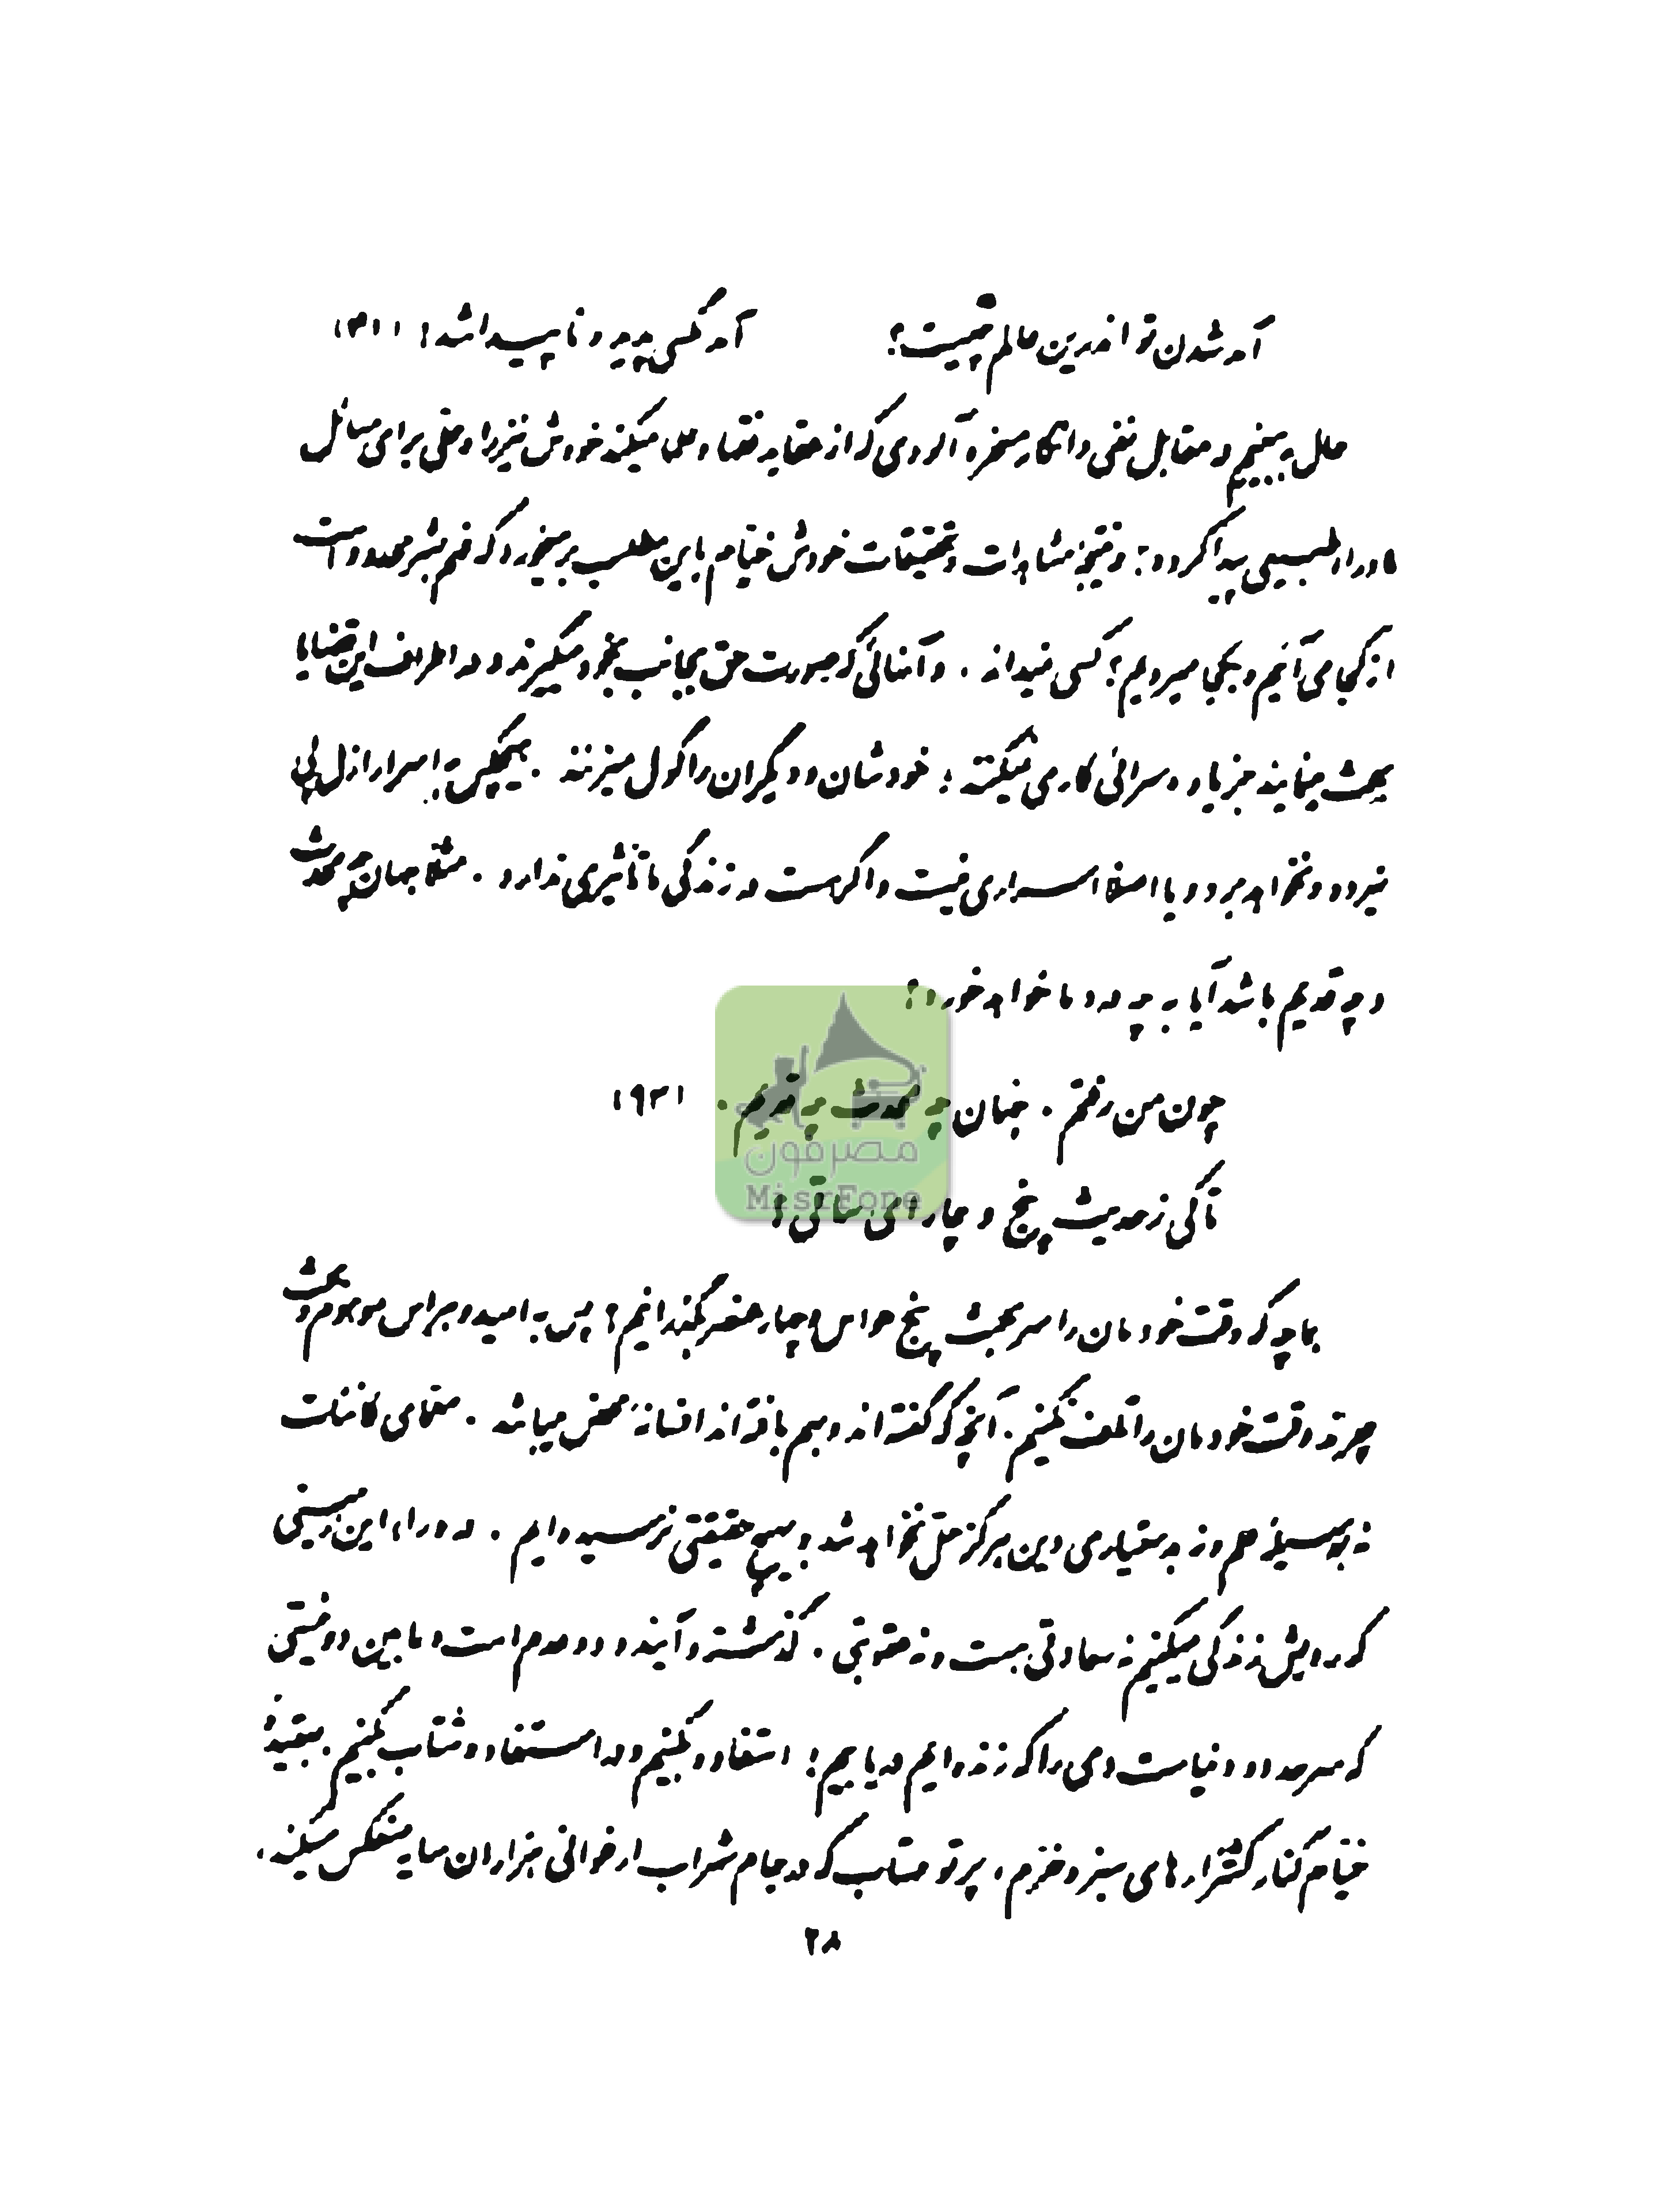 آمد شدن تو اندرین عالم چیست؟ آمد مگسی پدید و ناپیدا شد! (۴۱)
حال ببینیم در مقابل نفی و انکار مسخره آلودی که از عقاید فقها و علما میکند خودش نیز راه حلی برای مسائل
ماوراء طبیعی پیدا کرده؟ در نتیجهٔ مشاهدات و تحقیقات خودش خیام باین مطلب برمیخورد که فهم بشر محدود است
از کجا می آئیم و بکجا میرویم؟ کسی نمیداند . و آنهائی که صورت حق بجانب بخود میگیرند و در اطراف این قضایا
بحث مینمایند جز یاوه سرائی کاری نمیکنند ؛ خودشان و دیگران را گول میزنند . هیچکس به اسرار ازل پی
نبرده و نخواهد برد و یا اصلا اسراری نیست و اگر هست در زندگی ما تأثیری ندارد . مثلا جهان چه محدث
و چه قدیم باشد آیا به چه درد ما خواهد خورد؟
چون من رفتم . جهان چه محدث چه قدیم . (۹۳)
تا کی ز حدیث پنج و چار ای ساقی ؟
بما چه که وقت خودمان را سر بحث پنج حواس و چهار عنصر بگذرانیم؟ پس به امید و هراس موهوم و بحث
چرند وقت خودمان را تلف نکنیم . آنچه که گفته اند و بهم بافته اند افسانهٔ محض میباشد . معمای کائنات
نه بوسیلهٔ علم و نه به دستیاری دین هرگز حل نخواهد شد و بهیچ حقیقتی نرسیده ایم . در وراء این زمینی
که رویش زندگی میکنیم نه سعادتی هست و نه عقوبتی . گذشته و آینده دو عدم است و ما بین دو نیستی
که سرحد دو دنیاست دمی را که زنده ایم دریابیم ؛ استفاده بکنیم و در استفاده شتاب بکنیم . بعقیدهٔ
خیام کنار کشتزارهای سبز و خرم ، پرتو مهتاب که در جام شراب ارغوانی هزاران سایه منعکس میکند ،
۲۸
مصرفون
MisrFone